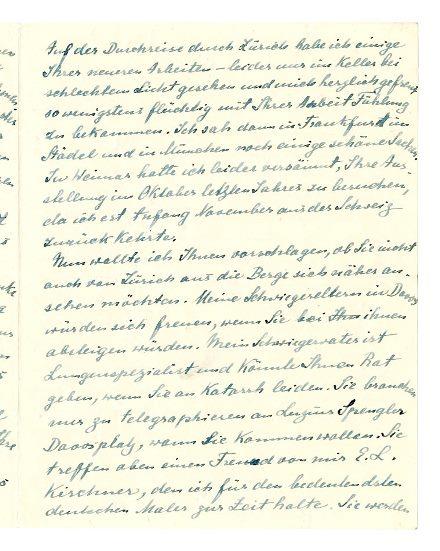 Auf der Durchreise durch Zürich habe ich einige
Ihrer neueren Arbeiten – leider nur im Keller bei
schlechtem Licht gesehen und mich herzlich gefreut
so wenigstens flüchtig mit Ihrer Arbeit Fühlung
zu bekommen. Ich sah dann in Frankfurt im
Städel und in München noch einige schöne Sachen.
In Weimar hatte ich leider versäumt, Ihre Aus-
stellung im Oktober letzten Jahres zu besuchen,
da ich erst Anfang November aus der Schweiz
zurück kehrte.
Nun wollte ich Ihnen vorschlagen, ob Sie nicht
auch von Zürich aus die Berge sich näher an-
sehen möchten. Meine Schwiegereltern in Davos
würden sich freuen, wenn Sie bei ihnen
absteigen würden. Mein Schwiegervater ist
Lungenspezialist und könnte Ihnen Rat
geben, wenn Sie an Katarrh leiden. Sie brauchen
nur zu telegraphieren an Lucius Spengler
Davosplatz, wann Sie kommen wollen. Sie
treffen oben einen Freund von mir E. L.
Kirchner, den ich für den bedeutendsten
deutschen Maler zur Zeit halte. Sie werden